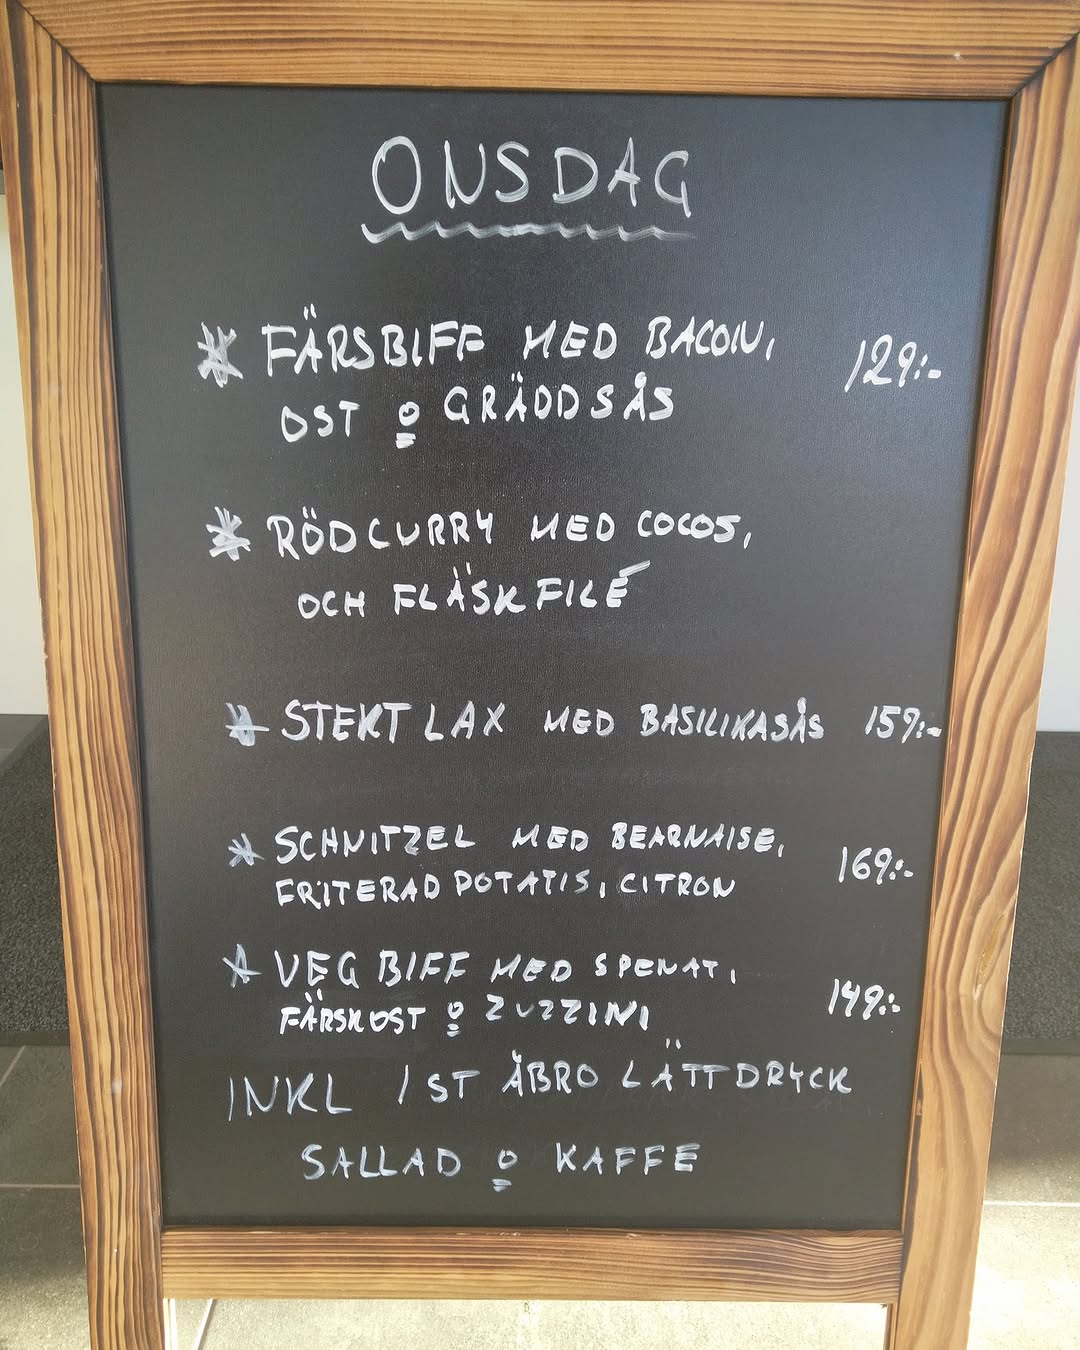 ONSDAG
* FÄRSBIFF MED BACON, 129:-
OST o GRÄDDSÅS
* RÖDCURRY MED COCOS,
OCH FLÄSKFILÉ
* STEKT LAX MED BASILIKASÅS 159:-
* SCHNITZEL MED BEARNAISE, 169:-
FRITERAD POTATIS, CITRON
* VEG BIFF MED SPENAT, 149:-
FÄRSKOST o ZUZZINI
INKL 1 ST ÅBRO LÄTTDRYCK
SALLAD o KAFFE